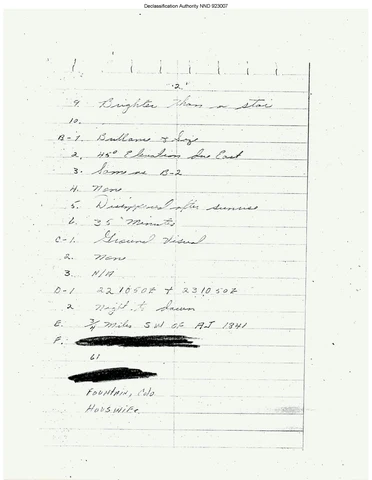 Declassification Authority NND 923007
"2."
9. Brighter than a star
10.
B-1. Brilliance & Size
2. 45° Elevation Due East
3. Same as B-2
4. None
5. Disappeared after sunrise
6. 35 Minutes
C-1. Ground Visual
2. None
3. N/A
D-1 221050Z & 231050Z
2 Night to Dawn
E. 3/4 Miles SW OF 1841
F.
61
FOUNTAIN, Colo
HOUSWIFE.